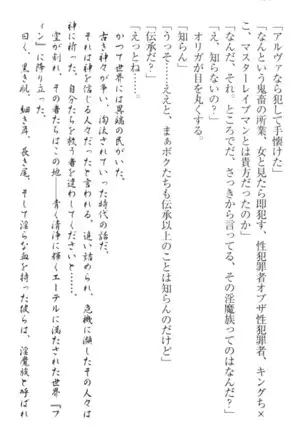 「アルヴァなら犯して手懐けた」
「なんという鬼畜の所業、女と見たら即犯す、性犯罪者オブザ性犯罪者、キングち×
こ、マスターレイプマンとは貴方だったのか」
「なんだ、それ。ところでだ、さっきから言ってる、その淫魔族ってのはなんだ?」
「え、知らないの?」
オリガが目を丸くする。
「知らん」
「うっそ……ええと、まぁボクたちも伝承以上のことは知らんのだけど」
「伝承だ?」
「えっとね……」
かつて世界には異端の民がいた。
古き神々が争い、淘汰されていった時代の話だ。
それは神を信じる人々だったと言われる。追い詰められ、危機に瀕したその人々は
神に祈った。自分たちを救う者を遣わしてくださいと。
空が割れ、その者たちはこの地――青く清浄に輝くエーテルに満たされた世界『フ
ィン』に降り立った。
曰く、黒き肌、細き肩、長き尾、そして淫らな血を持った彼らは、淫魔族と呼ばれ